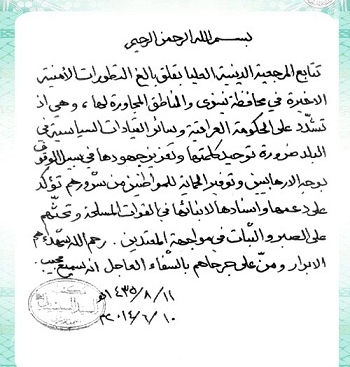 بسم الله الرحمن الرحيم
تتابع المرجعية الدينية العليا بقلق بالغ التطورات الأمنية
الاخيرة في محافظة نينوى والمناطق المجاورة لها، وهي اذ
تشدد على الحكومة العراقية وسائر القيادات السياسية في
البلد ضرورة توحيد كلمتها وتعزيز جهودها في سبيل الوقوف
بوجه الارهابيين وتوفير الحماية للمواطنين من شرورهم تؤكد
على دعمها واسنادها لابنائها في القوات المسلحة وتحثهم
على الصبر والثبات في مواجهة المعتدين. رحم الله شهداءهم
الابرار ومنّ على جرحاهم بالشفاء العاجل انه سميع مجيب.
١١/٨/١٤٣٥هـ
١٠/٦/٢٠١٤م